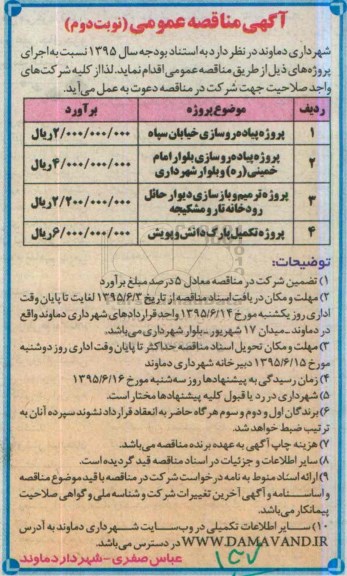 آگهی مناقصه عمومی (نوبت دوم)
شهرداری دماوند در نظر دارد به استناد بودجه سال ۱۳۹۵ نسبت به اجرای
پروژه‌های ذیل از طریق مناقصه عمومی اقدام نماید. لذا از کلیه شرکت‌های
واجد صلاحیت جهت شرکت در مناقصه دعوت به عمل می‌آید.
ردیف موضوع پروژه برآورد
۱ پروژه پیاده‌روسازی خیابان سپاه ۲/۰۰۰/۰۰۰/۰۰۰ ریال
۲ پروژه پیاده‌روسازی بلوار امام خمینی (ره) و بلوار شهرداری ۴/۰۰۰/۰۰۰/۰۰۰ ریال
۳ پروژه ترمیم و بازسازی دیوار حائل رودخانه تار و مشکیجه ۲/۲۰۰/۰۰۰/۰۰۰ ریال
۴ پروژه تکمیل پارک دانش و پویش ۶/۰۰۰/۰۰۰/۰۰۰ ریال
توضیحات:
۱) تضمین شرکت در مناقصه معادل ۵ درصد مبلغ برآورد
۲) مهلت و مکان دریافت اسناد مناقصه از تاریخ ۱۳۹۵/۶/۳ لغایت تا پایان وقت
اداری روز یکشنبه مورخ ۱۳۹۵/۶/۱۴ واحد قراردادهای شهرداری دماوند واقع
در دماوند ـ میدان ۱۷ شهریور ـ بلوار شهرداری می‌باشد.
۳) مهلت و مکان تحویل اسناد مناقصه حداکثر تا پایان وقت اداری روز دوشنبه
مورخ ۱۳۹۵/۶/۱۵ دبیرخانه شهرداری دماوند
۴) زمان رسیدگی به پیشنهادها روز سه‌شنبه مورخ ۱۳۹۵/۶/۱۶
۵) شهرداری در رد یا قبول کلیه پیشنهادها مختار است.
۶) برندگان اول و دوم و سوم هرگاه حاضر به انعقاد قرارداد نشوند سپرده آنان به
ترتیب ضبط خواهد شد.
۷) هزینه چاپ آگهی به عهده برنده مناقصه می‌باشد.
۸) سایر اطلاعات و جزئیات در اسناد مناقصه قید گردیده است.
۹) ارائه اسناد منوط به نامه درخواست شرکت در مناقصه با قید موضوع مناقصه
و اساسنامه و آگهی آخرین تغییرات شرکت و شناسه ملی و گواهی صلاحیت
پیمانکار می‌باشد.
۱۰) سایر اطلاعات تکمیلی در وب‌سایت شهرداری دماوند به آدرس
WWW.DAMAVAND.IR در دسترس می‌باشد.
عباس صفری - شهردار دماوند